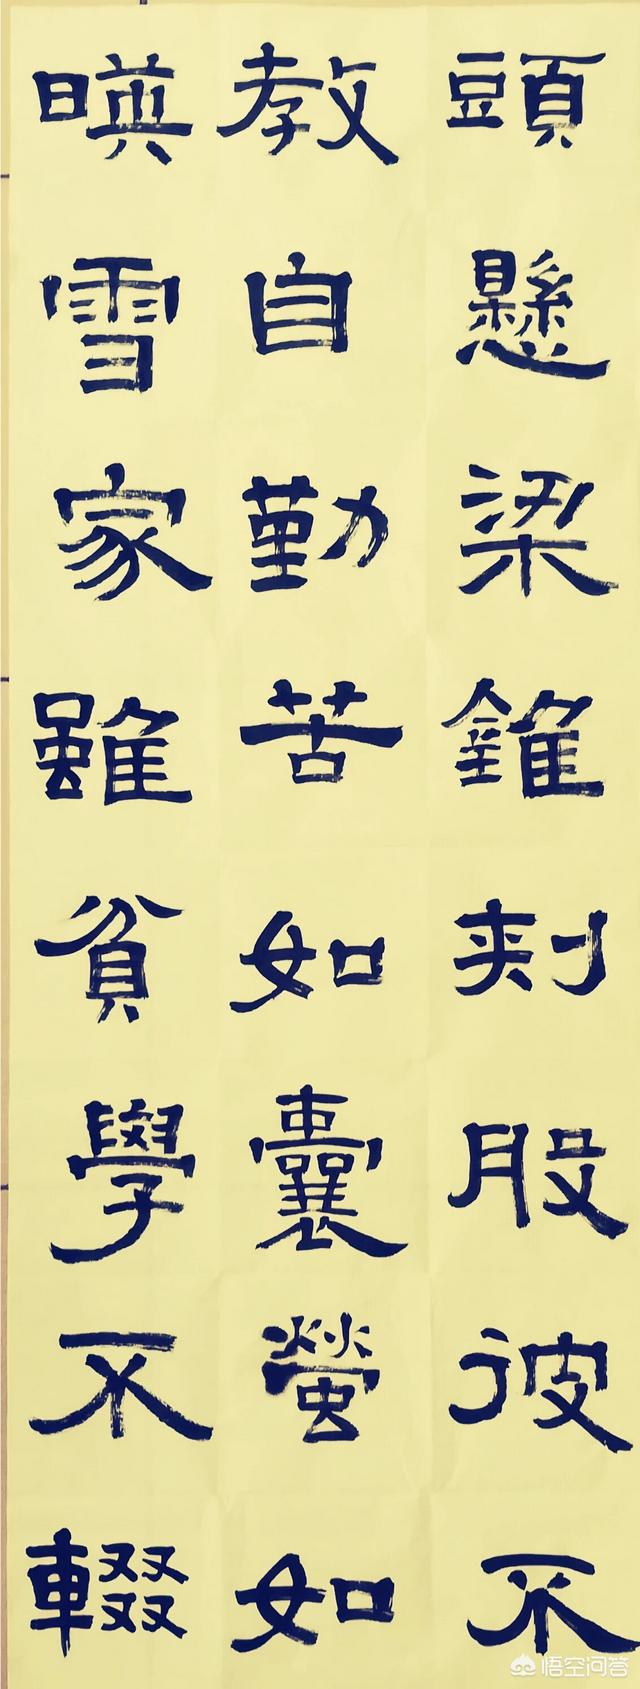 頭懸梁錐刺股彼不
教自勤苦如囊螢如
暎雪家雖貧學不輟
悟空问答